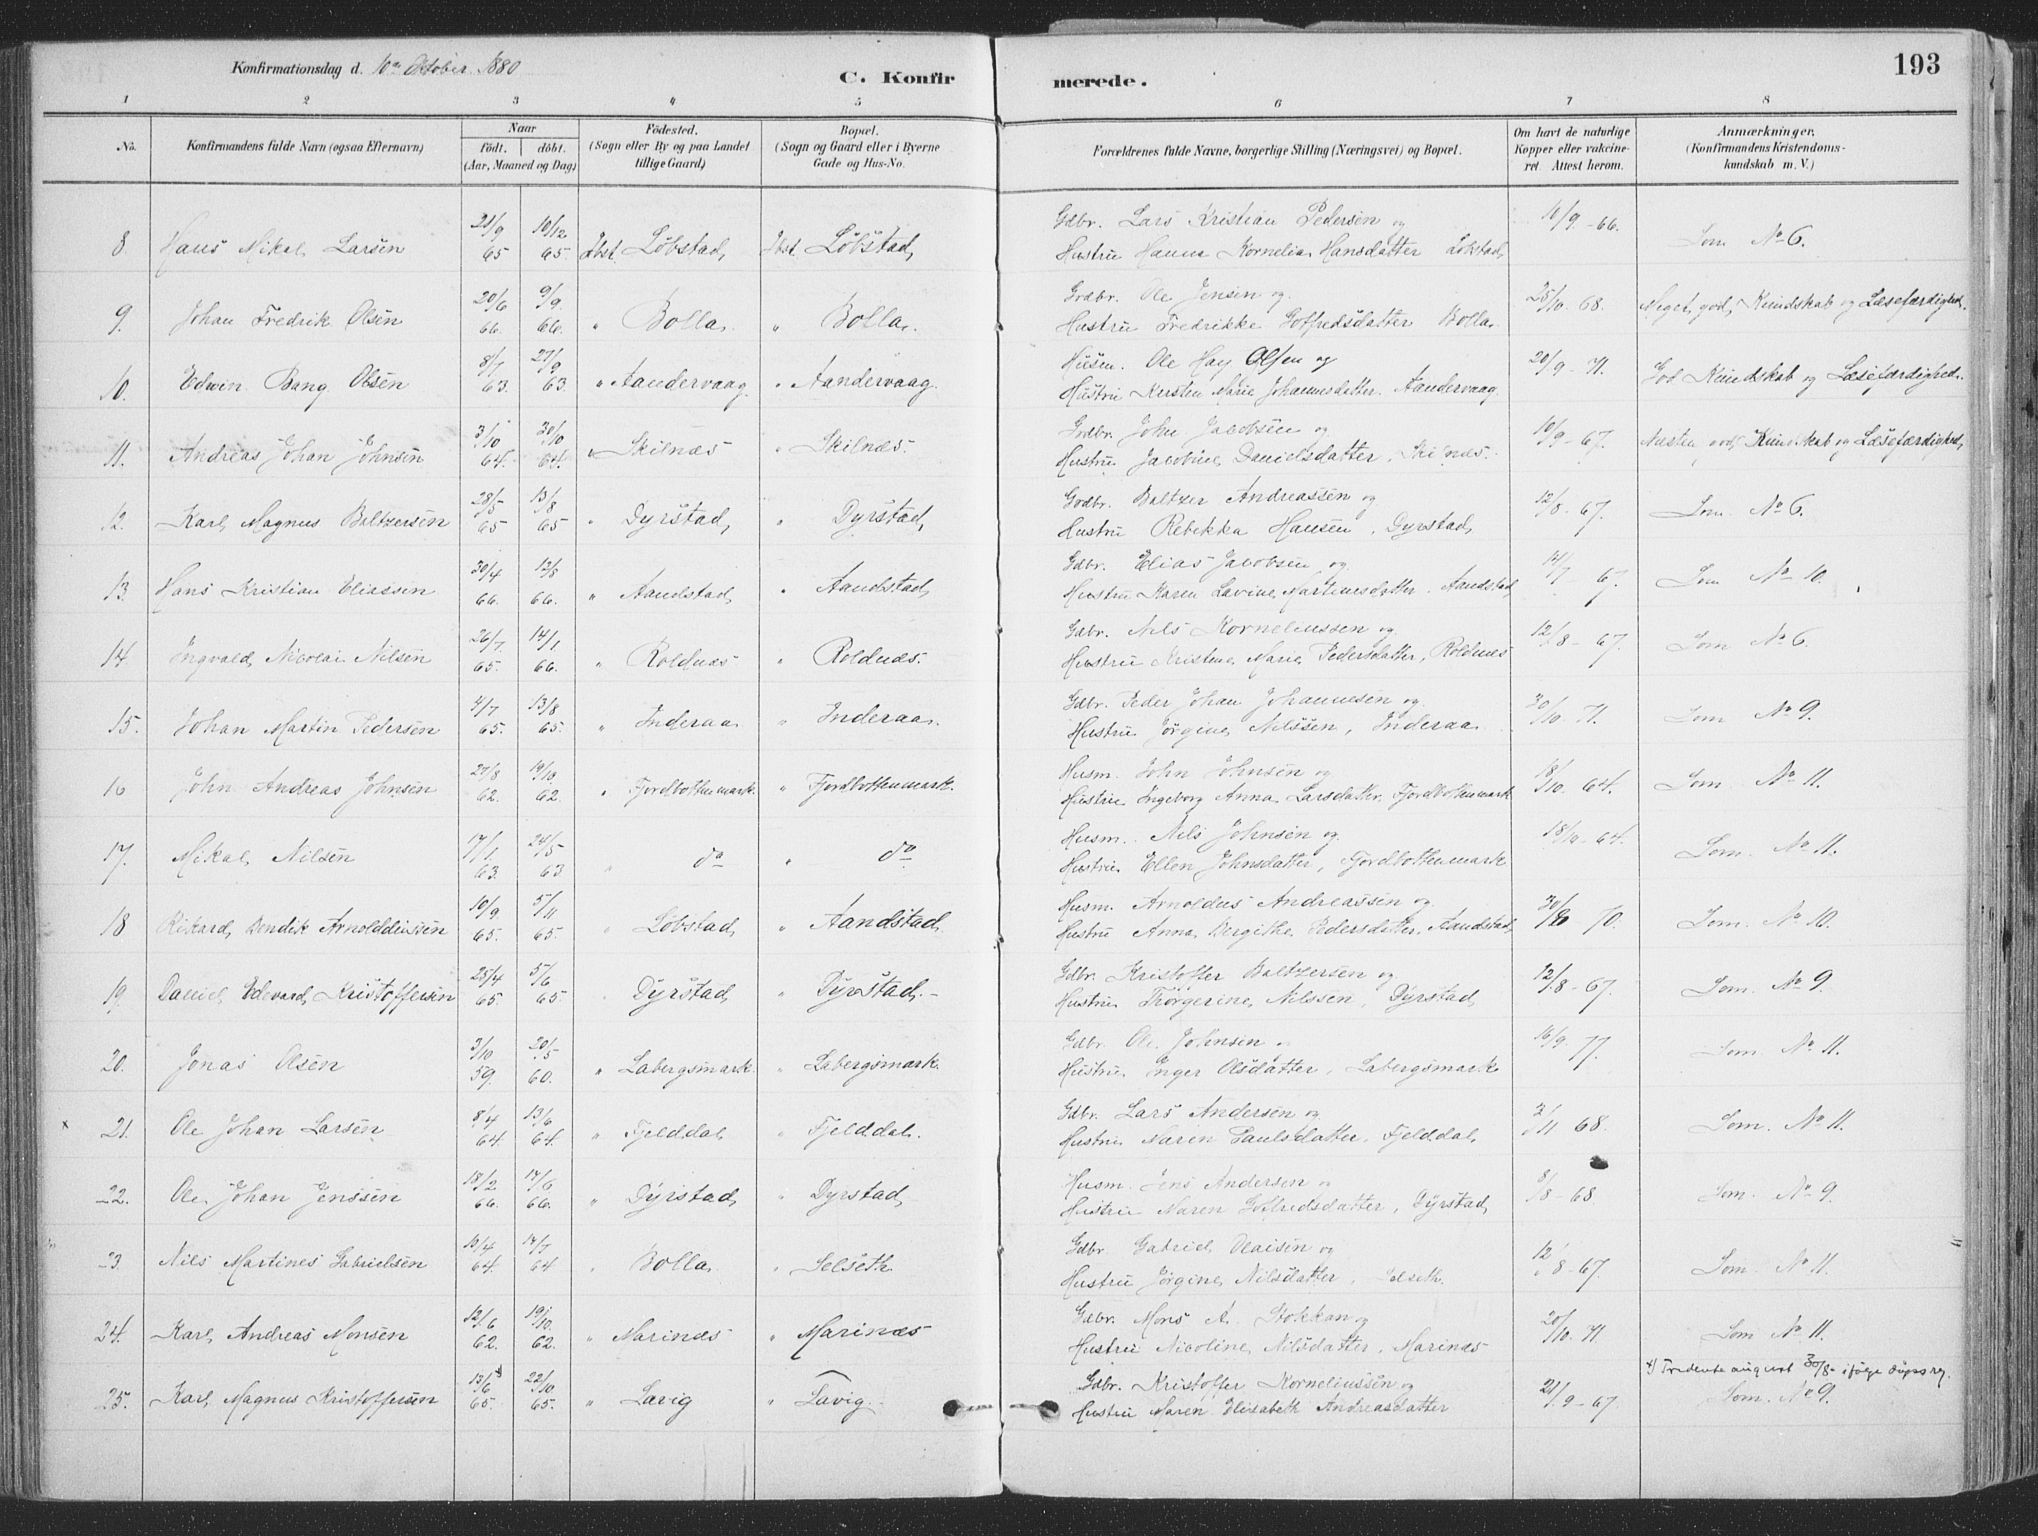 193
Konfirmationsdag d. 10de Oktober 1880
C. Konfirmerede.
1 2 3 4 5 6 7 8
No. | Konfirmandens fulde Navn (ogsaa Efternavn) | Naar født. døbt. (Aar, Maaned og Dag) | Fødested. (Sogn eller By og paa Landet tillige Gaard) | Bopæl. (Sogn og Gaard eller i Byerne Gade og Hus-No. | Forældrenes fulde Navne, borgerlige Stilling (Næringsvei) og Bopæl. | Om havt de naturlige Kopper eller vakcineret. Attest herom. | Anmærkninger. (Konfirmandens Kristendomskundskab m. V.)
8. Hans Mikal Larsen 21/9 65 10/12 65 Ibst. Løbstad Ibst. Løbstad Gdbr. Lars Kristian Pedersen og
Hustru Hanna Kornelia Hansdatter Løbstad 10/9 - 66. Som No 6.
9. Johan Fredrik Olsen 20/6 66. 9/9 66. " Bolla. " Bolla. Grdbr. Ole Jensen og
Hustru Fredrikke Gotfredsdatter Bolla. 25/10. 68. Meget god Kundskab og Læsefærdighed.
10. Edwin Bang Olsen 8/7 63. 27/9 63. " Aandervaag. " Aandervaag. Husm. Ole Hay Olsen og
Hustru Kersten Marie Johannesdatter. Aandervaag. 20/9 - 71. God Kundskab og Læsefærdighed.
11. Andreas Johan Johnsen 3/10 64. 30/10 64. " Skilnæs " Skilnæs. Grdbr. John Jacobsen og
Hustru Jacobine Danielsdatter. Skilnæs. 10/9 - 67. Næsten god Kundskab og Læsefærdighed.
12. Karl Magnus Baltzersen 28/5 65 13/8 65 " Dyrstad " Dyrstad, Godbr. Baltzer Andreassen og
Hustru Rebekka Hansen, Dyrstad, 12/8 - 67. Som No 6.
13. Hans Kristian Eliassen 30/4 66. 12/8 66. " Aandstad " Aandstad Gdbr. Elias Jacobsen og
Hustru Karen Lavine Martinusdatter. Aandstad 14/7 67. Som No 10.
14 Ingvald Nicolai Nilsen 26/7 65. 14/1 66. " Roldnæs " Roldnæs. Gdbr. Nils Korneliussen og
Hustru Kristine Marie Pedersdatter, Roldnæs 12/8 - 67. Som No 6.
15. Johan Martin Pedersen 4/7 65. 13/8 65. " Inderaa " Inderaa. Gdbr. Peder Johan Johannesen og
Hustru Jørgine Nilssen, Inderaa 30/10 71. Som No 9.
16 John Andreas Johnsen 27/8 62. 19/10 62. " Fjordbottenmark. " Fjordbottenmark. Husm. John Johnsen og
Hustru Ingeborg Anna Larsdatter Fjordbottenmark 18/10. 64. Som No 11.
17. Mikal Nilsen 17/1 63. 24/5 63 " do " do Husm. Nils Johnsen og
Hustru Ellen Johnsdatter, Fjordbottenmark 18/10 - 64. Som. No 11.
18 Rikard Bendik Arnolddussen 10/9 65. 5/11 65. " Løbstad " Aandstad Husm. Arnoldus Andreassen og
Hustru Anna Birgithe Pedersdatter, Aandstad 70. Som. No 10.
19. Daniel Edevard Kristoffersen 25/4 65. 5/6 65 " Dyrstad " Dyrstad. Gdbr. Kristoffer Baltzersen og
Hustru Nilssen, Dyrstad 12/8 - 67. Som. No 9.
20. Jonas Olsen 3/10 59. 20/5 60. " Labergsmark. " Labergsmark. Gdbr. Ole Johnsen
Hustru Inger Olsdatter, Labergsmark 16/9. 77. Som No 11.
x 21. Ole Johan Larsen 8/4 64. 13/6 64. " Fjelddal " Fjelddal. Gdbr. Lars Andersen og
Hustru Maren Paulsdatter, Fjelddal 2/11 68. Som. No 11.
22. Ole Johan Jenssen 18/2 66. 17/6 66. " Dyrstad " Dyrstad Husm. Jens Andersen og
Hustru Maren Gotfredsdatter, Dyrstad 8/8 - 68 Som. No 9.
23. Nils Martines Gabrielsen 13/4 64. 17/7 64 " Bolla " Selseth Gdbr. Gabriel Olaisen og
Hustru Jørgine Nilsdatter. Selseth. 12/8 - 67. Som. No 11.
24. Karl Andreas Monsen 12/6 62. 19/10 62. " Marinæs " Marinæs Gdbr. Mons A. Stokkan og
Hustru Nicoline Nilsdatter, Marinæs 20/10. 71 Som No 11.
25. Karl Magnus Kristoffersen 13/6 65. 22/10 65. " Lavig " Lavig. Gdbr. Kristoffer Korneliussen og
Hustru Maren Elisabeth Andreasdatter 21/9 - 67. august 30/8 - ifølge dåpsreg. Som. No 9.